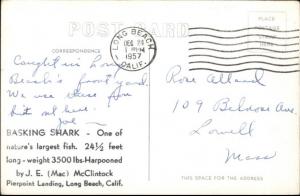 POST CARD
CORRESPONDENCE
LONG BEACH
DEC 28
1 PM
1957
CALIF.
Caught in Long
Beach's front yard.
We use these for
bait out here.
Joe
BASKING SHARK - One of
nature's largest fish. 24½ feet
long - weight 3500 lbs-Harpooned
by J. E. (Mac) McClintock
Pierpoint Landing, Long Beach, Calif.
Rose Alland
109 Belrose Ave
Lowell
Mass
THIS SPACE FOR THE ADDRESS